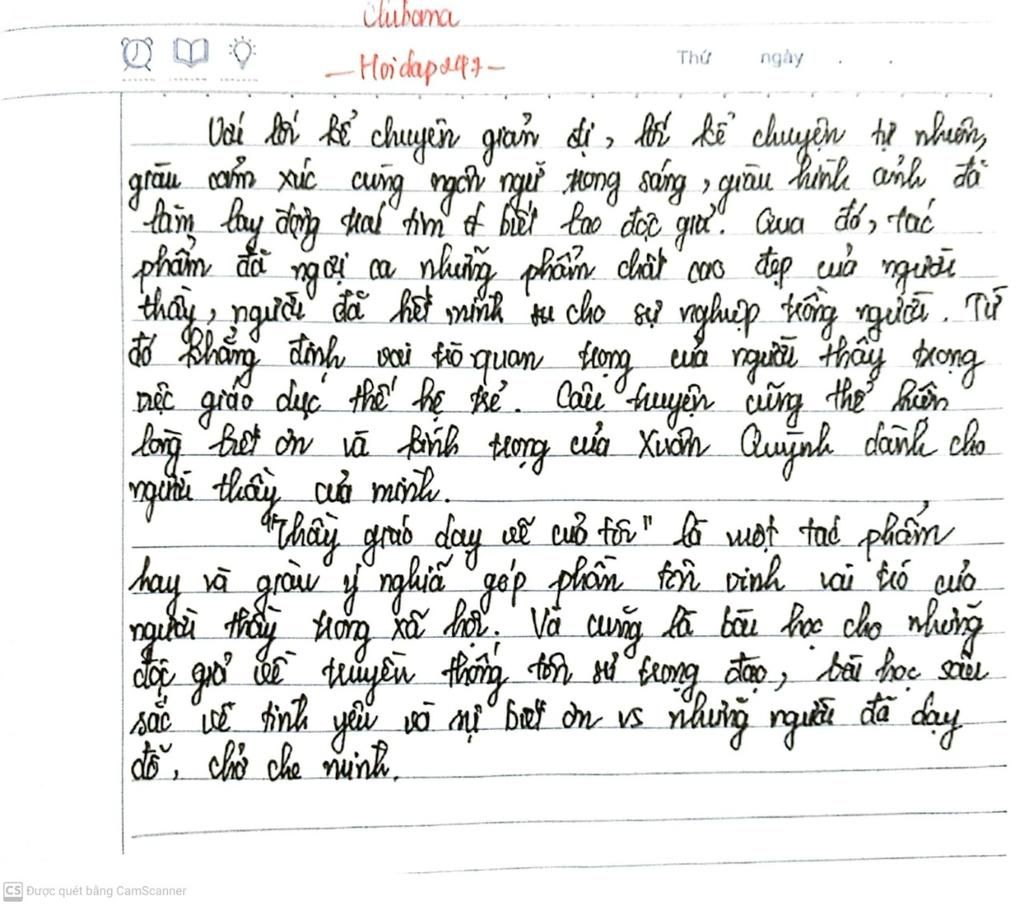 Clubama
— Hoidap247 —
Thứ ngày . .
Với lối kể chuyện giản dị, lối kể chuyện tự nhiên,
giàu cảm xúc cùng ngôn ngữ trong sáng, giàu hình ảnh đã
làm lay động trái tim biết bao độc giả. Qua đó, tác
phẩm đã ngợi ca những phẩm chất cao đẹp của người
thầy, người đã hết mình cho sự nghiệp trồng người. Từ
đó khẳng định vai trò quan trọng của người thầy trong
việc giáo dục thế hệ trẻ. Câu truyện cũng thể hiện
lòng biết ơn và kính trọng của Xuân Quỳnh dành cho
người thầy của mình.
"Thầy giáo dạy vẽ của tôi" là một tác phẩm
hay và giàu ý nghĩa góp phần tôn vinh vai trò của
người thầy trong xã hội. Và cũng là bài học cho những
độc giả về truyền thống tôn sư trọng đạo, bài học sâu
sắc về tình yêu và sự biết ơn vs những người đã dạy
dỗ, chở che mình.
CS Được quét bằng CamScanner